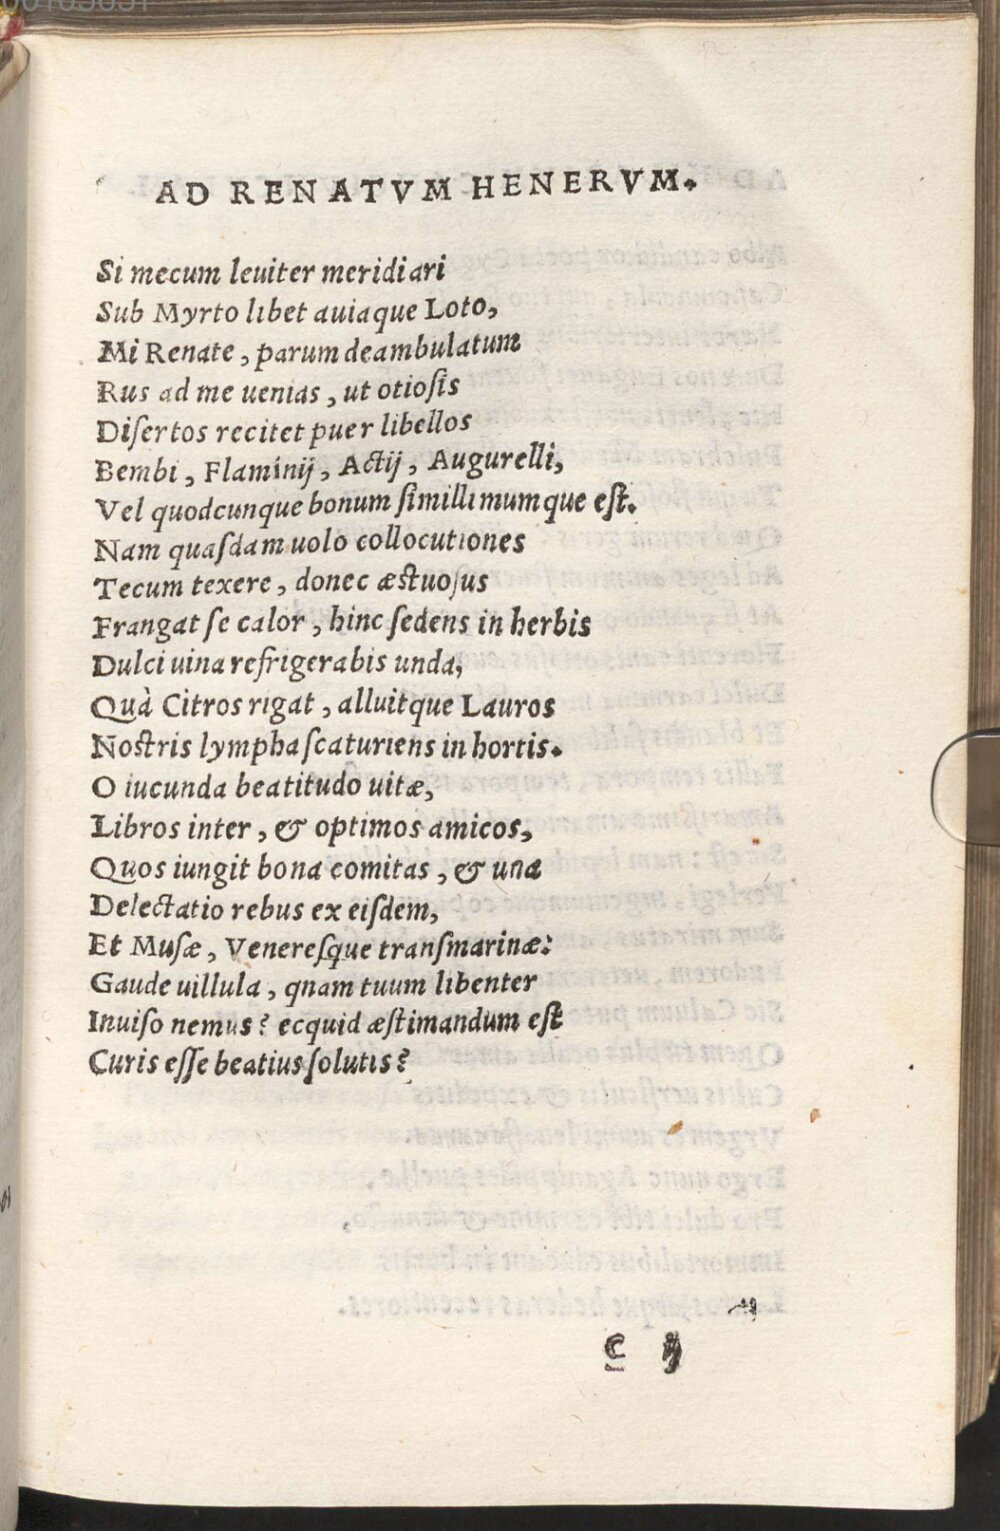 AD RENATVM HENERVM.
Si mecum leuiter meridiari
Sub Myrto libet auiaque Loto,
Mi Renate, parum deambulatum
Rus ad me uenias, ut otiosis
Disertos recitet puer libellos
Bembi, Flaminij, Actij, Augurelli,
Vel quodcunque bonum simillimumque est.
Nam quasdam uolo collocutiones
Tecum texere, donec æstuosus
Frangat se calor, hinc sedens in herbis
Dulci uina refrigerabis unda,
Quà Citros rigat, alluitque Lauros
Nostris lympha scaturiens in hortis.
O iucunda beatitudo uitæ,
Libros inter, & optimos amicos,
Quos iungit bona comitas, & una
Delectatio rebus ex eisdem,
Et Musæ, Veneresque transmarinæ:
Gaude uillula, qnam tuum libenter
Inuiso nemus? ecquid æstimandum est
Curis esse beatius solutis?
C ij